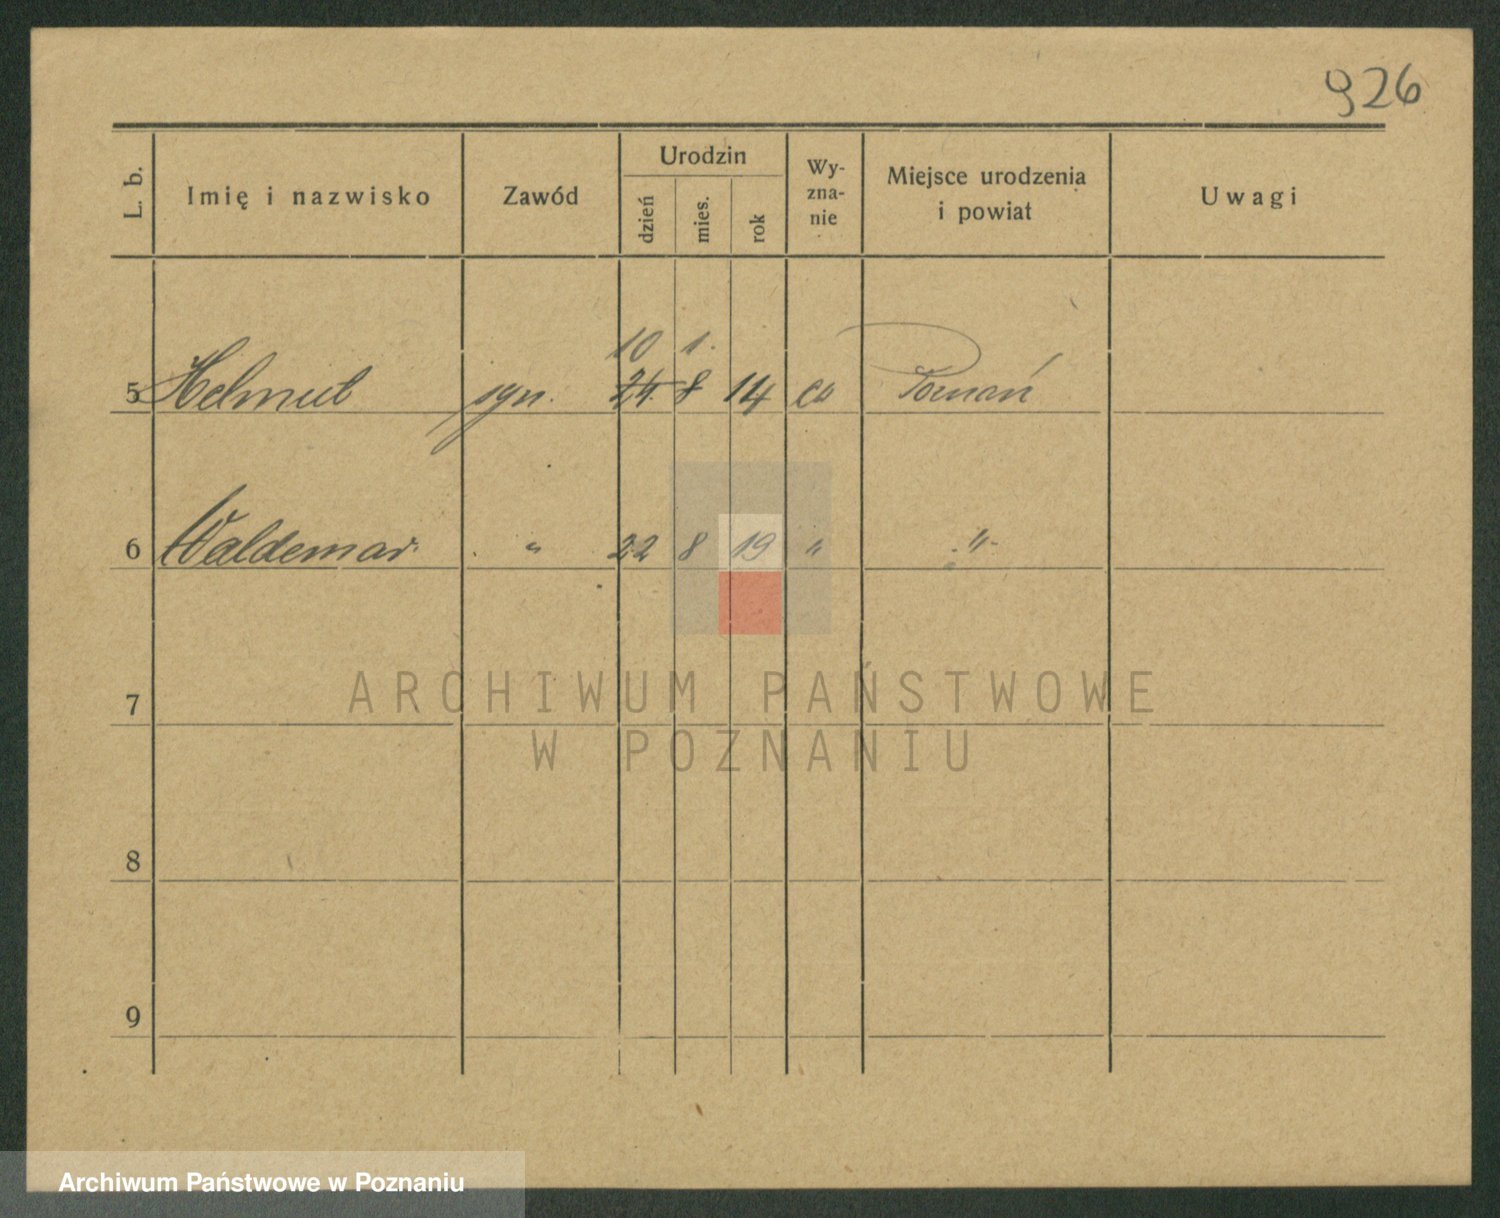 926
L. b. Imię i nazwisko Zawód Urodzin dzień mies. rok Wy-zna-nie Miejsce urodzenia i powiat Uwagi
10 1.
5 Helmut syn. 24. 8 14 ew Poznań
6 Waldemar " 22 8 19 " "
7
8
9
ARCHIWUM PAŃSTWOWE
W POZNANIU
Archiwum Państwowe w Poznaniu